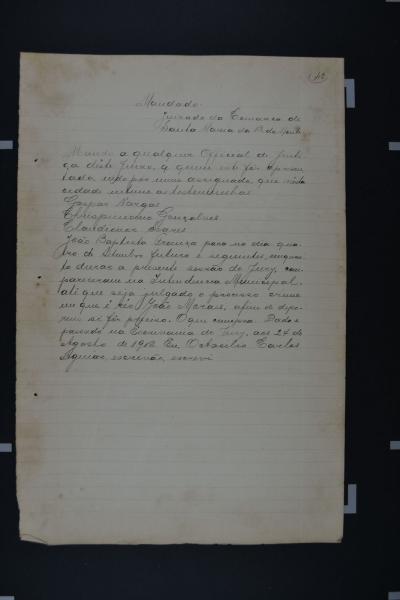 Mandado.
Juizado da Comarca de
Santa Maria da B. do Monte
Mando a qualquer Official de Justi
ça deste Juizo, a quem este fôr apresen
tado, indo por mim assignado, que nesta
cidade intime as testemunhas
Gaspar Vargas
Chrispiniano Gonçalves
Claudiano Soares
João Baptista para no dia qua
tro de Setembro futuro e seguintes, enquan
to durar a presente sessão do Jury, com
parecerem na Intendencia Municipal,
até que seja julgado o processo crime
em que é réo João Moraes, afim de depo
rem se fôr preciso. O que cumpra. Dado e
passado na Escrivania do Jury, aos 24 de
Agosto de 1912. Eu, Octacilio Carlos
Aguiar, escrivão, escrevi